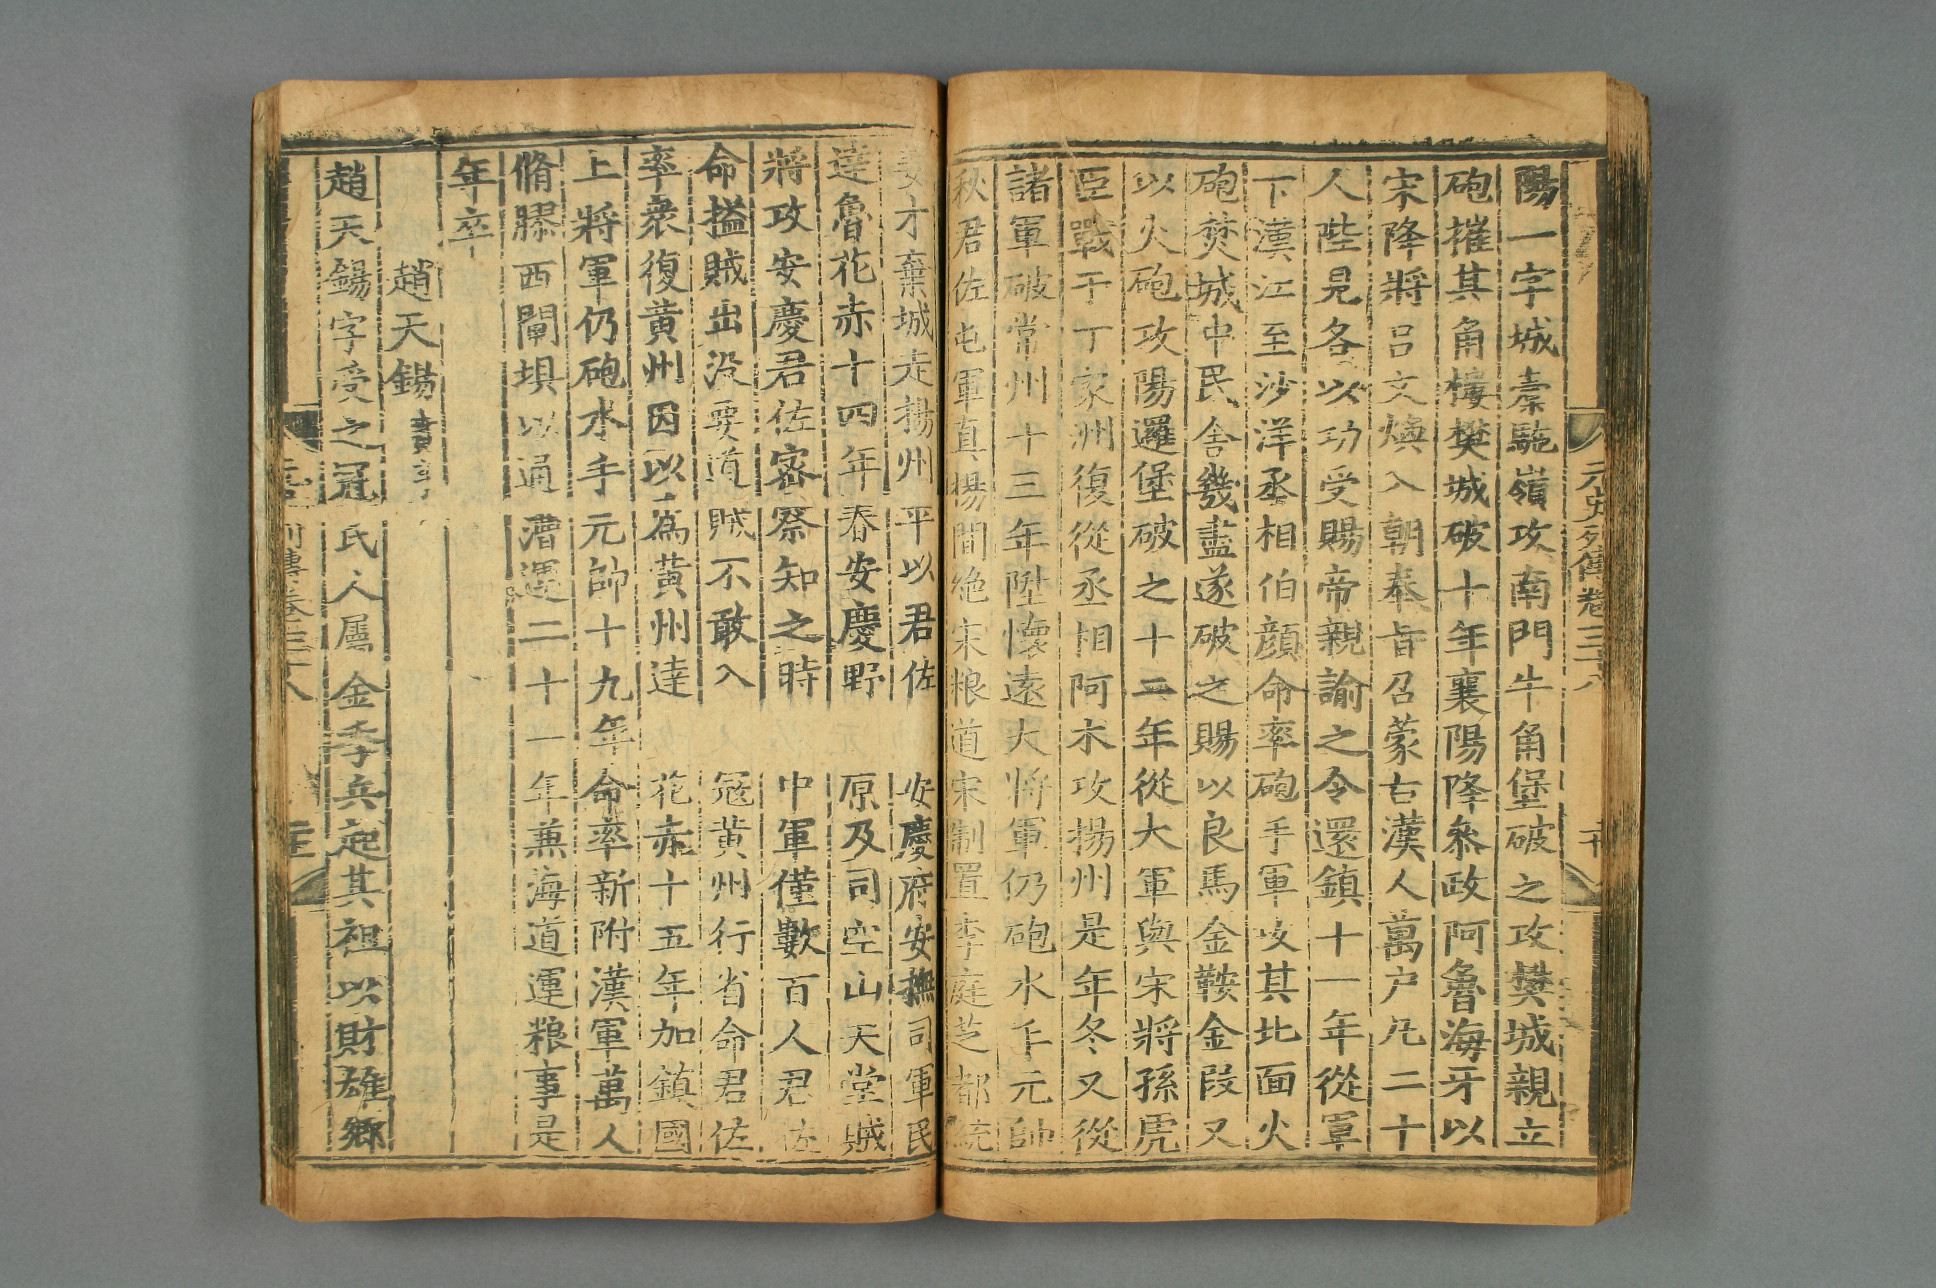 元史列傳卷三十八
二十
陽一字城橐駞嶺攻南門牛角堡破之攻樊城親立
砲摧其角樓樊城破十年襄陽降叅政阿魯海牙以
宋降將呂文煥入朝奉旨召蒙古漢人萬户凡二十
人陛見各以功受賜帝親諭之令還鎮十一年從軍
下漢江至沙洋丞相伯顔命率砲手軍攻其北面火
砲焚城中民舍幾盡遂破之賜以良馬金鞍金段又
以火砲攻陽邏堡破之十二年從大軍與宋將孫虎
臣戰于丁家洲復從丞相阿术攻揚州是年冬又從
諸軍破常州十三年陞懷遠大將軍仍砲水手元帥
秋君佐屯軍真揚間絶宋粮道宋制置李庭芝都統
姜才棄城走揚州平以君佐安慶府安撫司軍民
達魯花赤十四年春安慶野原及司空山天堂賊
將攻安慶君佐宻察知之時中軍僅數百人君佐
命搤賊出没要道賊不敢入冦黄州行省命君佐
率衆復黄州因以為黄州達花赤十五年加鎮國
上將軍仍砲水手元帥十九年命率新附漢軍萬人
脩膠西閘埧以通漕運二十一年兼海道運粮事是
年卒
趙天錫賁亨
趙天錫字受之冠氏人屬金季兵起其祖以財雄鄉